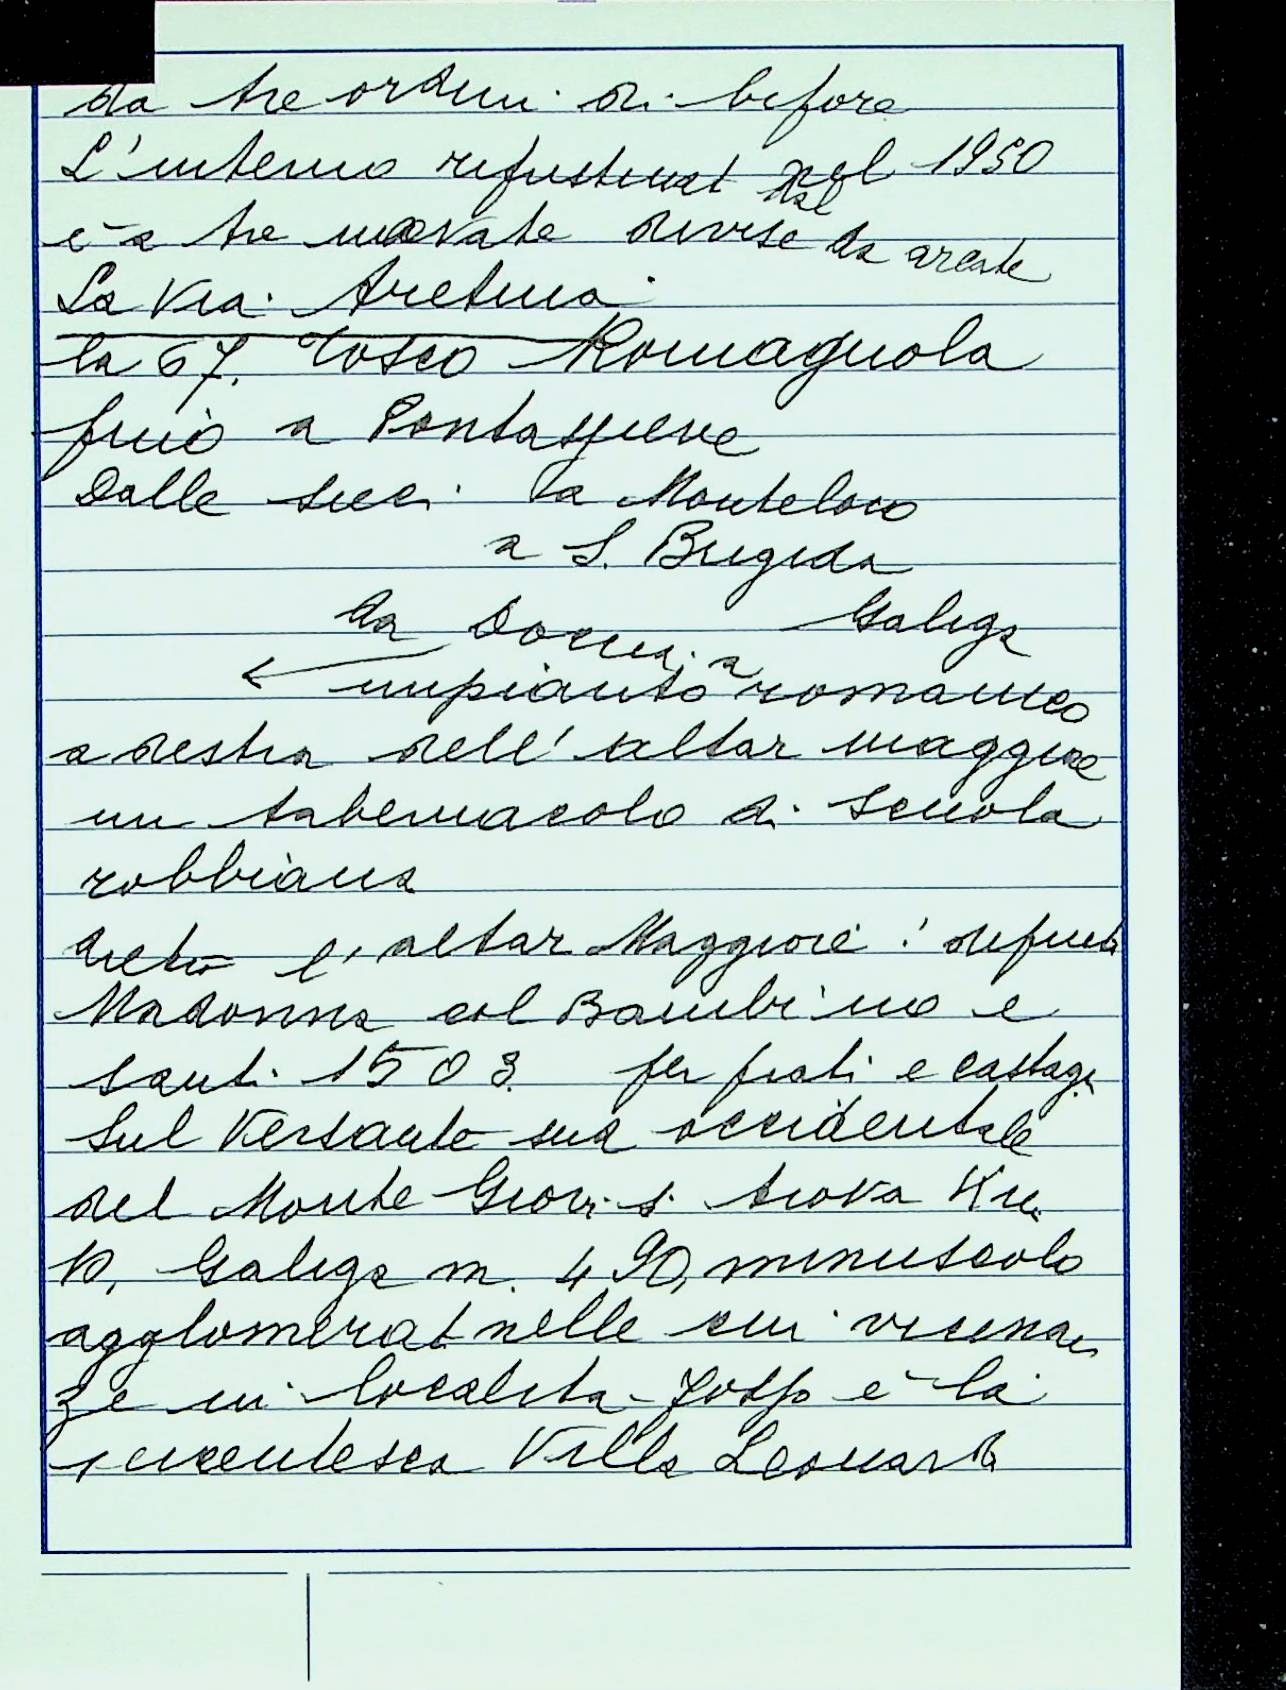 da tre ordini di bifore
L'interno ripristinat nel 1950
è a tre navate divise da arcate
La Via Aretina
la 67. Tosco Romagnola
fino a Pontassieve
Dalle Sieci la Monteloro
a S. Brigida
da Doccia a Galiga
impianto romanico
a destra dell'altar maggiore
un tabernacolo di scuola
robbiana
dietro l'altar Maggiore: dipinto
Madonna col Bambino e
santi 1503. per prati e castagn
Sul Versante sud occidentale
del Monte Giovi si trova
Galiga m. 490, minuscolo
agglomerat nelle cui vicinan
ze in località è la
Villa Leonarda